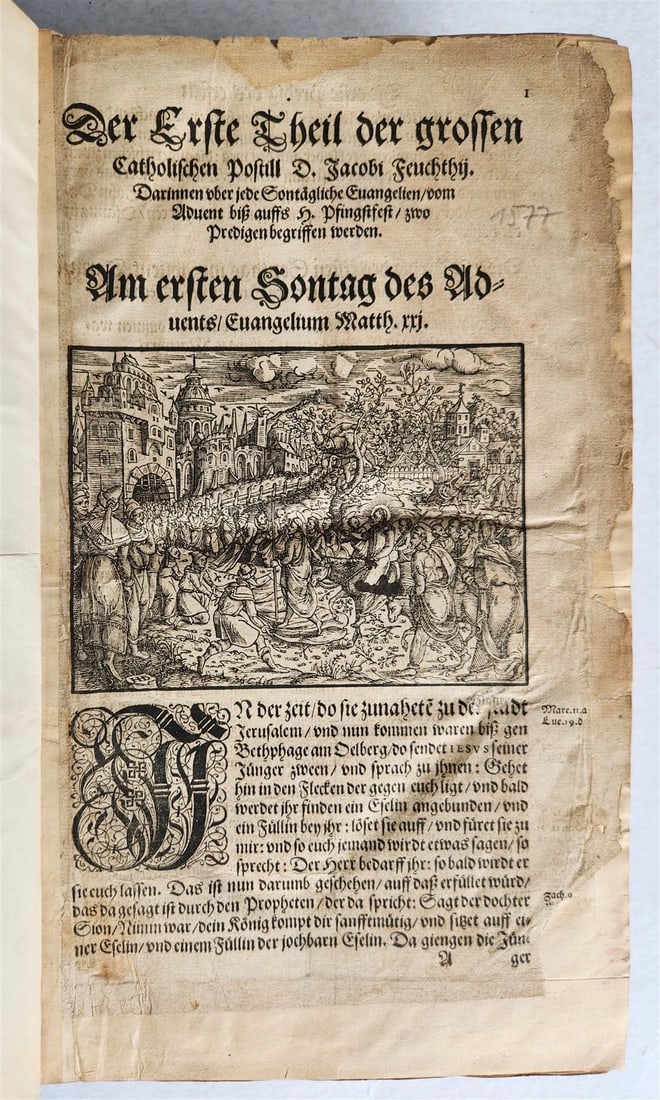 1
Der Erste Theil der grossen
Catholischen Postill D. Jacobi Feuchthij.
Darinnen vber jede Sontägliche Euangelien/vom
Aduent biß auffs H. Pfingstfest/ zwo
Predigen begriffen werden.
1577
Am ersten Sontag des Ad-
uents/ Euangelium Matth. xxj.
IN der zeit/do sie zunahetē zu der stadt
Jerusalem/vnd nun kommen waren biß gen
Bethphage am Oelberg/do sendet IESVS seiner
Jünger zween/ vnd sprach zu jhnen: Gehet
hin in den Flecken der gegen euch ligt/ vnd bald
werdet jhr finden ein Eselin angebunden/ vnd
ein Füllin bey jhr: löset sie auff/ vnd füret sie zu
mir: vnd so euch jemand wirdt etwas sagen/ so
sprecht: Der Herr bedarff jhr: so bald wirdt er
sie euch lassen. Das ist nun darumb geschehen/ auff daß erfüllet würd/
das da gesagt ist durch den Propheten/ der da spricht: Sagt der dochter
Sion/Nimm war/dein König kompt dir sanfftmütig/ vnd sitzet auff ei-
ner Eselin/ vnd einem Füllin der jochbarn Eselin. Da giengen die Jün-
A ger
Marc.11.a
Luc.19.d
Zach.